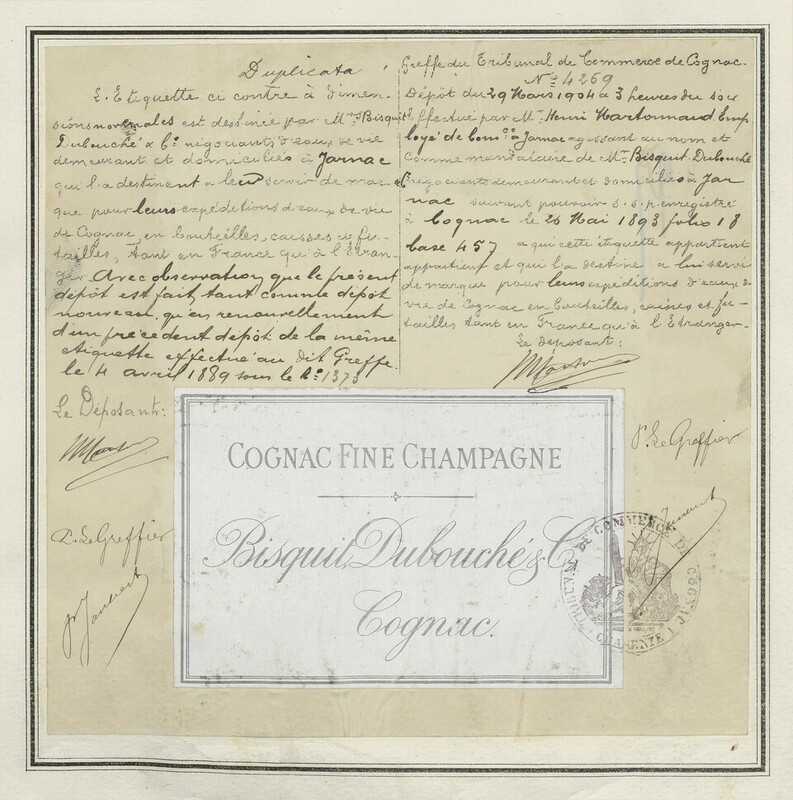 Duplicata
L'Etiquette ci contre à dimen-
sions normales est destinée par Mrs Bisquit
Dubouché & Co négociants d'eaux de vie
demeurant et domiciliés à Jarnac
qui l'a destinent a leur servir de mar-
que pour leurs expéditions d'eaux de vie
de Cognac, en bouteilles, caisses et fu-
tailles, tant en France qu'à l'Etran-
ger. Avec observation que le présent
dépôt est fait, tant comme dépôt
nouveau qu'en renouvellement
d'un précédent dépôt de la même
etiquette effectué au dit Greffe
le 4 avril 1889 sous le No 1373
Le Déposant:
P. Le Greffier
Greffe du Tribunal de Commerce de Cognac.
No 4269
Dépôt du 29 Mars 1904 à 3 heures du soir
Effectué par Mr. Henri Hartonnaud Emp
loyé de Comce à Jarnac agissant au nom et
Comme mandataire de Mrs. Bisquit-Dubouché
négociants demeurant et domiciliés à Jar
nac suivant pouvoir s.s.p. enregistré
à Cognac le 26 Mai 1893 folio 18
Case 457 a qui cette étiquette appartient
appartient et qui l'a destine a lui servi
de marque pour leurs expéditions d'eaux de
vie de Cognac en bouteilles, caisses et fu-
tailles tant en France qu'à l'Etranger-
Le déposant:
P. Le Greffier
COGNAC FINE CHAMPAGNE
Bisquit, Dubouché & Co
Cognac.
TRIBUNAL DE COMMERCE DE COGNAC
(CHARENTE)